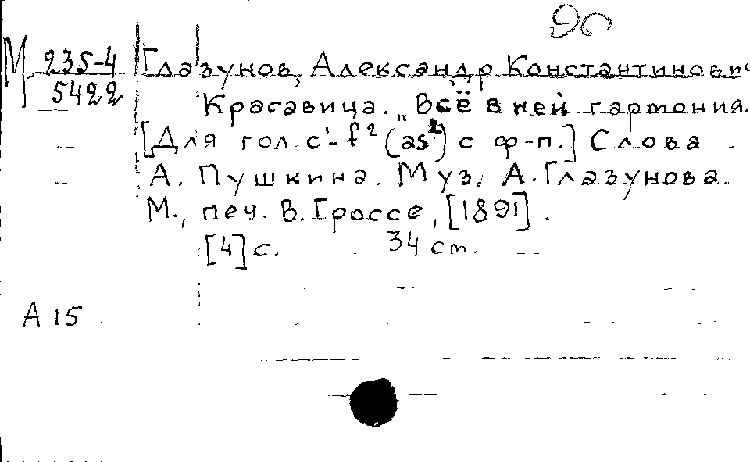 90
М 235-4 Глазунов, Александр Константинович
5422
Красавица. „Всё в ней гармония.
[Для гол. c¹-f² (as²) с ф-п.] Слова
А. Пушкина. Муз. А. Глазунова.
М., печ. В. Гроссе, [1891].
[4] с. 34 см.
А 15